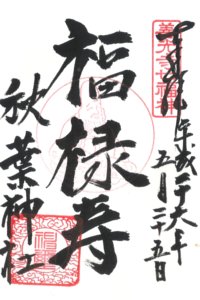 善光寺七福神
平成二十六年
五月二十五日
福禄寿
秋葉神社